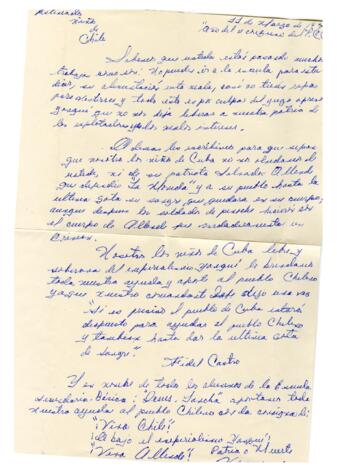 Estimados
niños
de
Chile
11 de Marzo de
"Año del
Sabemos que ustedes están pasando mucho
trabajo
días, su alimentación está mala, casi no tienen ropas
para vestirse y todo esto es por culpa del yugo
yanqui que no nos deja liberar a nuestra patria de
los explotadores y de los males
escribimos para que sepan
que nosotros los niños de Cuba no nos olvidamos de
ustedes, ni de su patriota Salvador Allende
que defendió La Moneda y a su pueblo hasta la
última gota de sangre que quedara en su cuerpo,
aunque después los soldados de
el cuerpo de Allende que verdaderamente
Nosotros los niños de Cuba libre y
soberana del imperialismo yanqui le brindamos
toda nuestra ayuda y apoyo al pueblo Chileno
ya que nuestro comandante dijo una vez
"Si es preciso el pueblo de Cuba estará
dispuesto para ayudar el pueblo Chileno
y también hasta dar la última gota
de sangre."
Fidel Castro
Y en nombre de todos los alumnos de la Escuela
Secundaria Básica: aportamos toda
nuestra ayuda al pueblo Chileno con la consigna de:
"¡Viva Chile!
¡Abajo el imperialismo Yanqui!
"¡Viva Allende!" Patria o Muerte